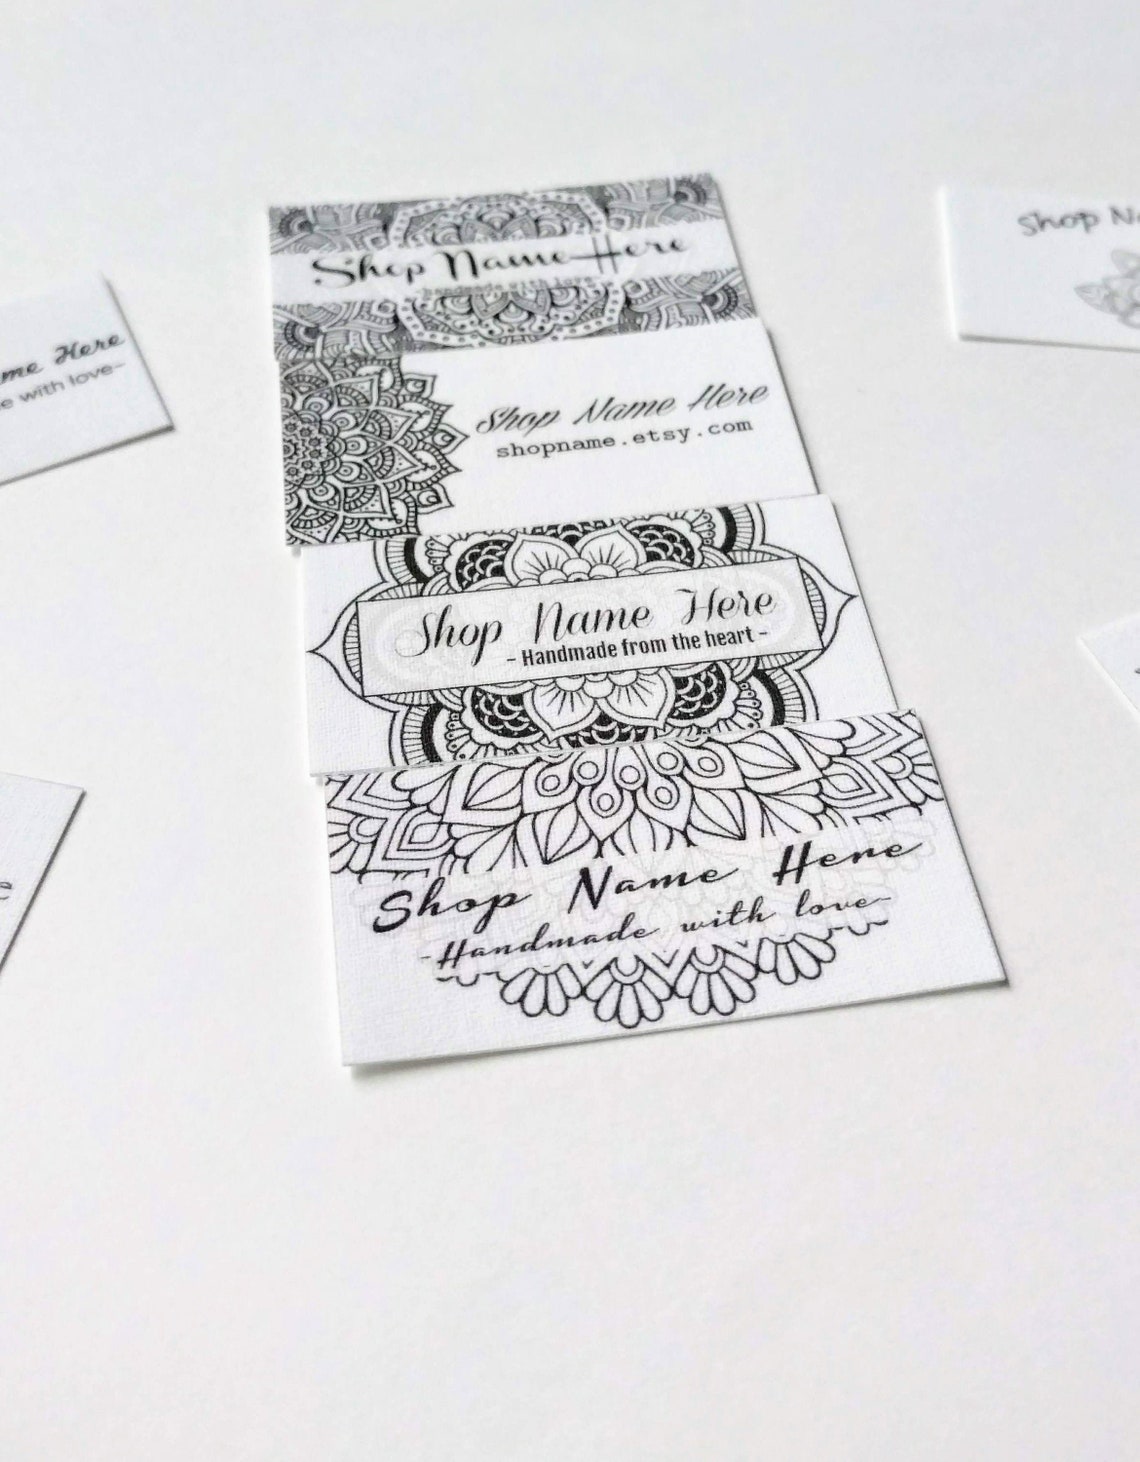 Shop Name Here
-handmade with love-
Shop Name Here
shopname.etsy.com
Shop Name Here
- Handmade from the heart -
Shop Name Here
-Handmade with love-
Here
with love-
Shop